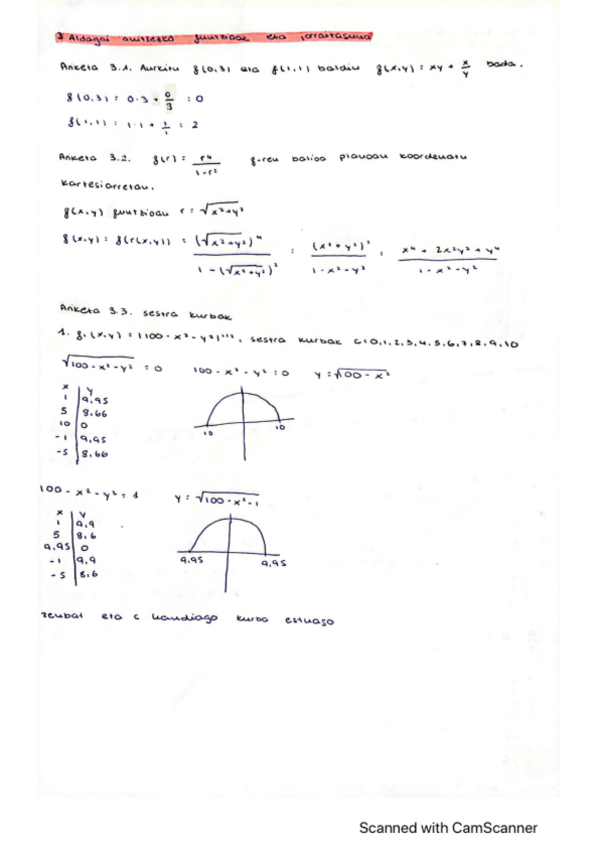 3 Aldagai anitzeko funtzioak eta jarraitasuna
Ariketa 3.1. Aurkitu f(0,3) eta f(1,1) baldin f(x,y) = xy + x/y bada.
f(0,3) = 0·3 + 0/3 = 0
f(1,1) = 1·1 + 1/1 = 2
Ariketa 3.2. f(r) = r⁴/(1-r²) f-ren balioa planoan koordenatu
kartesiarretan.
f(x,y) funtzioan r = √(x²+y²)
f(x,y) = f(r(x,y)) = (√(x²+y²))⁴/(1-(√(x²+y²))²) = (x²+y²)²/(1-x²-y²) = (x⁴+2x²y²+y⁴)/(1-x²-y²)
Ariketa 3.3. sestra kurbak
1. f₁(x,y) = |100-x²-y²|^(1/2), sestra kurbak c=0,1,2,3,4,5,6,7,8,9,10
√(100-x²-y²) = 0 100-x²-y² = 0 y = √(100-x²)
x y
1 9.95
5 8.66
10 0
-1 9.95
-5 8.66
10 10
100-x²-y² = 1 y = √(100-x²-1)
x y
1 9,9
5 8,6
9.95 0
-1 9,9
-5 8,6
9.95 9,95
zenbat eta c handiago kurba estuago
Scanned with CamScanner